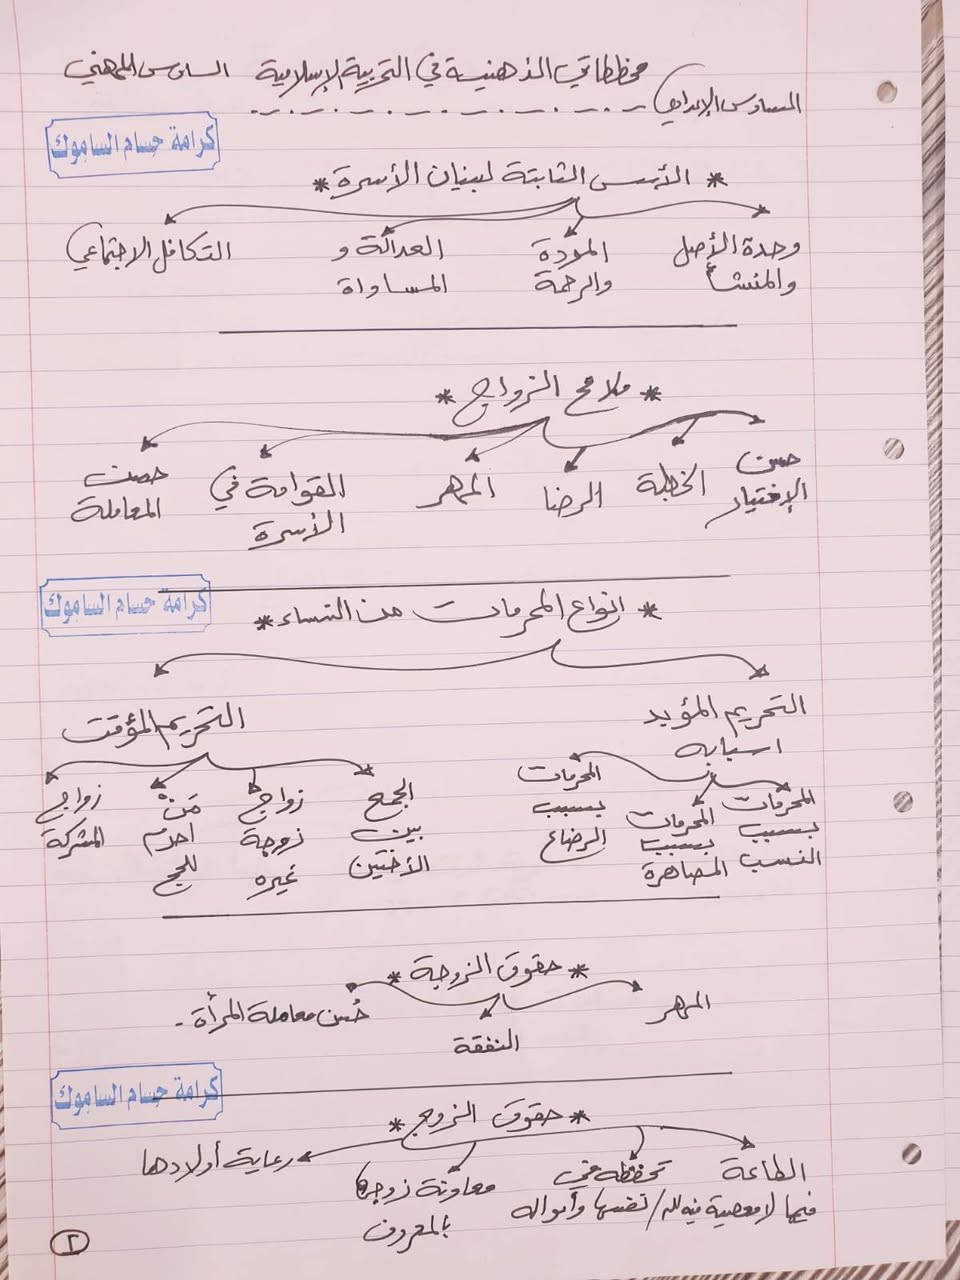 مخططاتي الذهنية في التربية الإسلامية السادس المهني
السادس الإعدادي
كرامة حسام الساموك
* الأسس الثابتة لبنيان الأسرة *
وحدة الأصل والمنشأ
المودة والرحمة
العدالة و المساواة
التكافل الاجتماعي
* ملامح الزواج *
حسن الإختيار
الخطبة
الرضا
المهر
القوامة في الأسرة
حسن المعاملة
كرامة حسام الساموك
* انواع المحرمات من النساء *
التحريم المؤبد
اسبابه
المحرمات بسبب النسب
المحرمات بسبب المصاهرة
المحرمات بسبب الرضاع
التحريم المؤقت
الجمع بين الأختين
زواج زوجة غيره
مَنْ احرم للحج
زواج المشركة
* حقوق الزوجة *
المهر
النفقة
حُسن معاملة المرأة .
كرامة حسام الساموك
* حقوق الزوج *
الطاعة فيما لا معصية فيه لله
تحفظه في نفسها وأمواله
معاونة زوجها بالمعروف
رعاية أولادها
٢